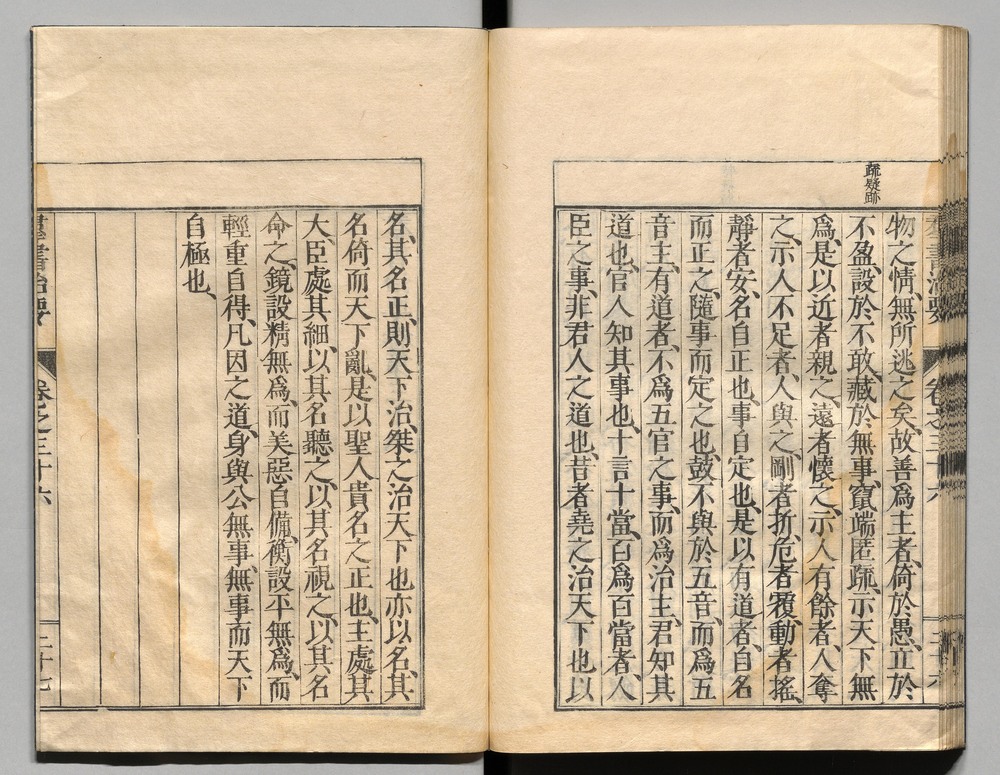 疏疑跡
羣書治要 卷之三十六 二十六
物之情、無所逃之矣、故善爲主者、倚於愚、立於
不盈、設於不敢、藏於無事、竄端匿疏、示天下無
爲、是以近者親之、遠者懷之、示人有餘者、人奪
之、示人不足者、人與之、剛者折、危者覆、動者搖、
靜者安、名自正也、事自定也、是以有道者、自名
而正之、隨事而定之也、鼓不與於五音、而爲五
音主、有道者、不爲五官之事、而爲治主、君知其
道也、官人知其事也、十言十當、百爲百當者、人
臣之事、非君人之道也、昔者堯之治天下也、以
名、其名正、則天下治、桀之治天下也、亦以名、其
名倚而天下亂、是以聖人貴名之正也、主處其
大、臣處其細、以其名聽之、以其名視之、以其名
命之、鏡設精無爲、而美惡自備、衡設平無爲、而
輕重自得、凡因之道、身與公無事、無事而天下
自極也、
羣書治要 卷之三十六 二十七